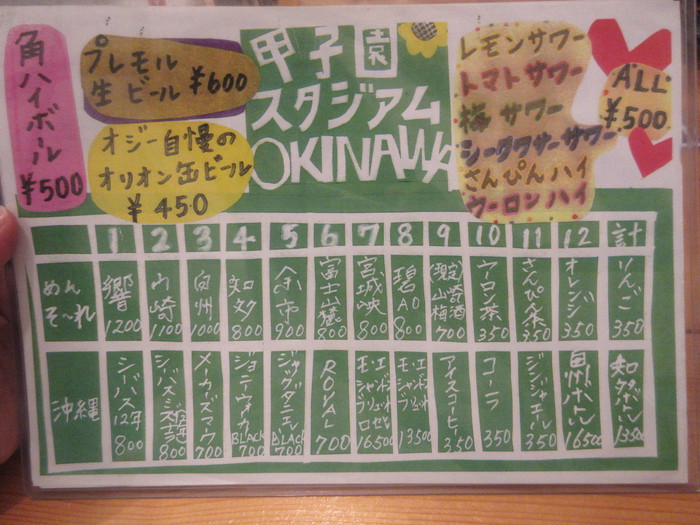 角ハイボール
¥500
プレモル
生ビール ¥600
オジー自慢の
オリオン缶ビール
¥450
甲子園
スタジアム
OKINAWA
レモンサワー
トマトサワー
梅サワー
シークワサーサワー
さんぴんハイ
ウーロンハイ
ALL
¥500
1 2 3 4 5 6 7 8 9 10 11 12 計
めんそ〜れ
響 1200
山崎 1100
白州 1000
知多 800
余市 900
富士山麓 800
宮城峡 800
碧AO 800
山崎梅酒 700
ウーロン茶 350
さんぴん茶 350
オレンジ 350
りんご 350
沖縄
シーバス12年 800
シーバスミズナラ 800
メーカーズマーク 700
ジョニーウォーカーBLACK 700
ジャックダニエルBLACK 700
ROYAL 700
モエ・エ・シャンドン ブリュット ロゼ 16500
モエ・エ・シャンドン ブリュット 13500
アイスコーヒー 350
コーラ 350
ジンジャエール 350
白州ボトル 16500
知多ボトル 13500